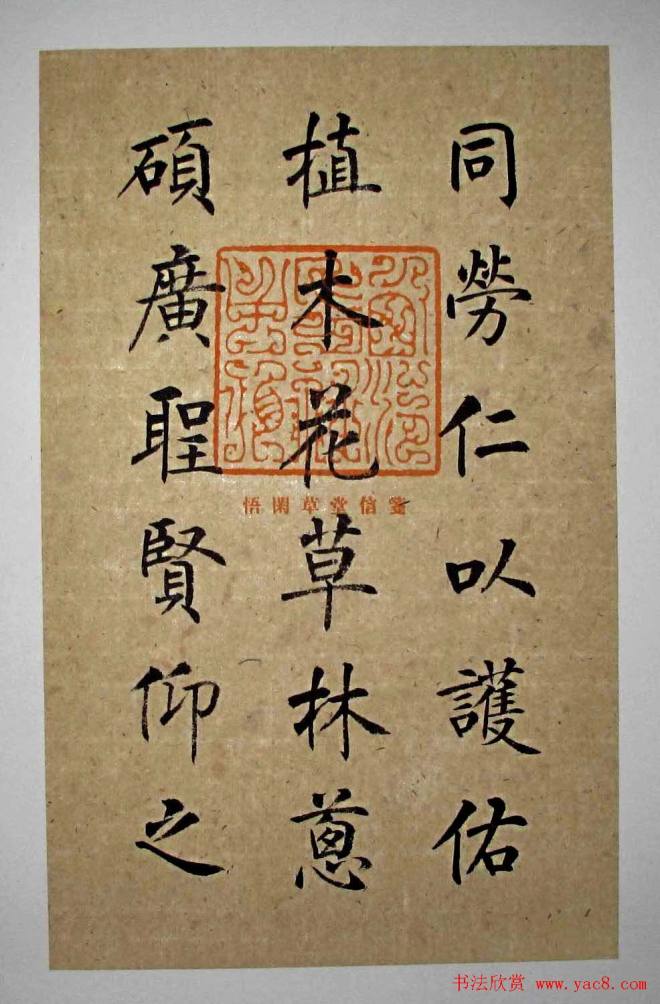 同勞仁以護佑
植木花草林蔥
碩廣聖賢仰之
悟閑草堂信箋
书法欣赏 www.yac8.com